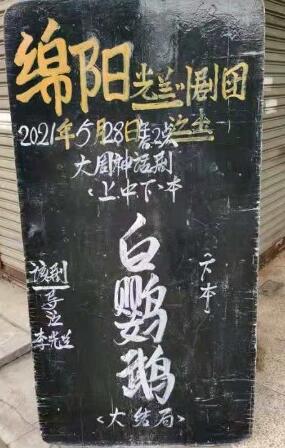 绵阳光兰川剧团
2021年5月28日 2点
大周神话剧
<上中下>本
白鹦鹉
六本
该剧
导演
李光兰
<大结局>